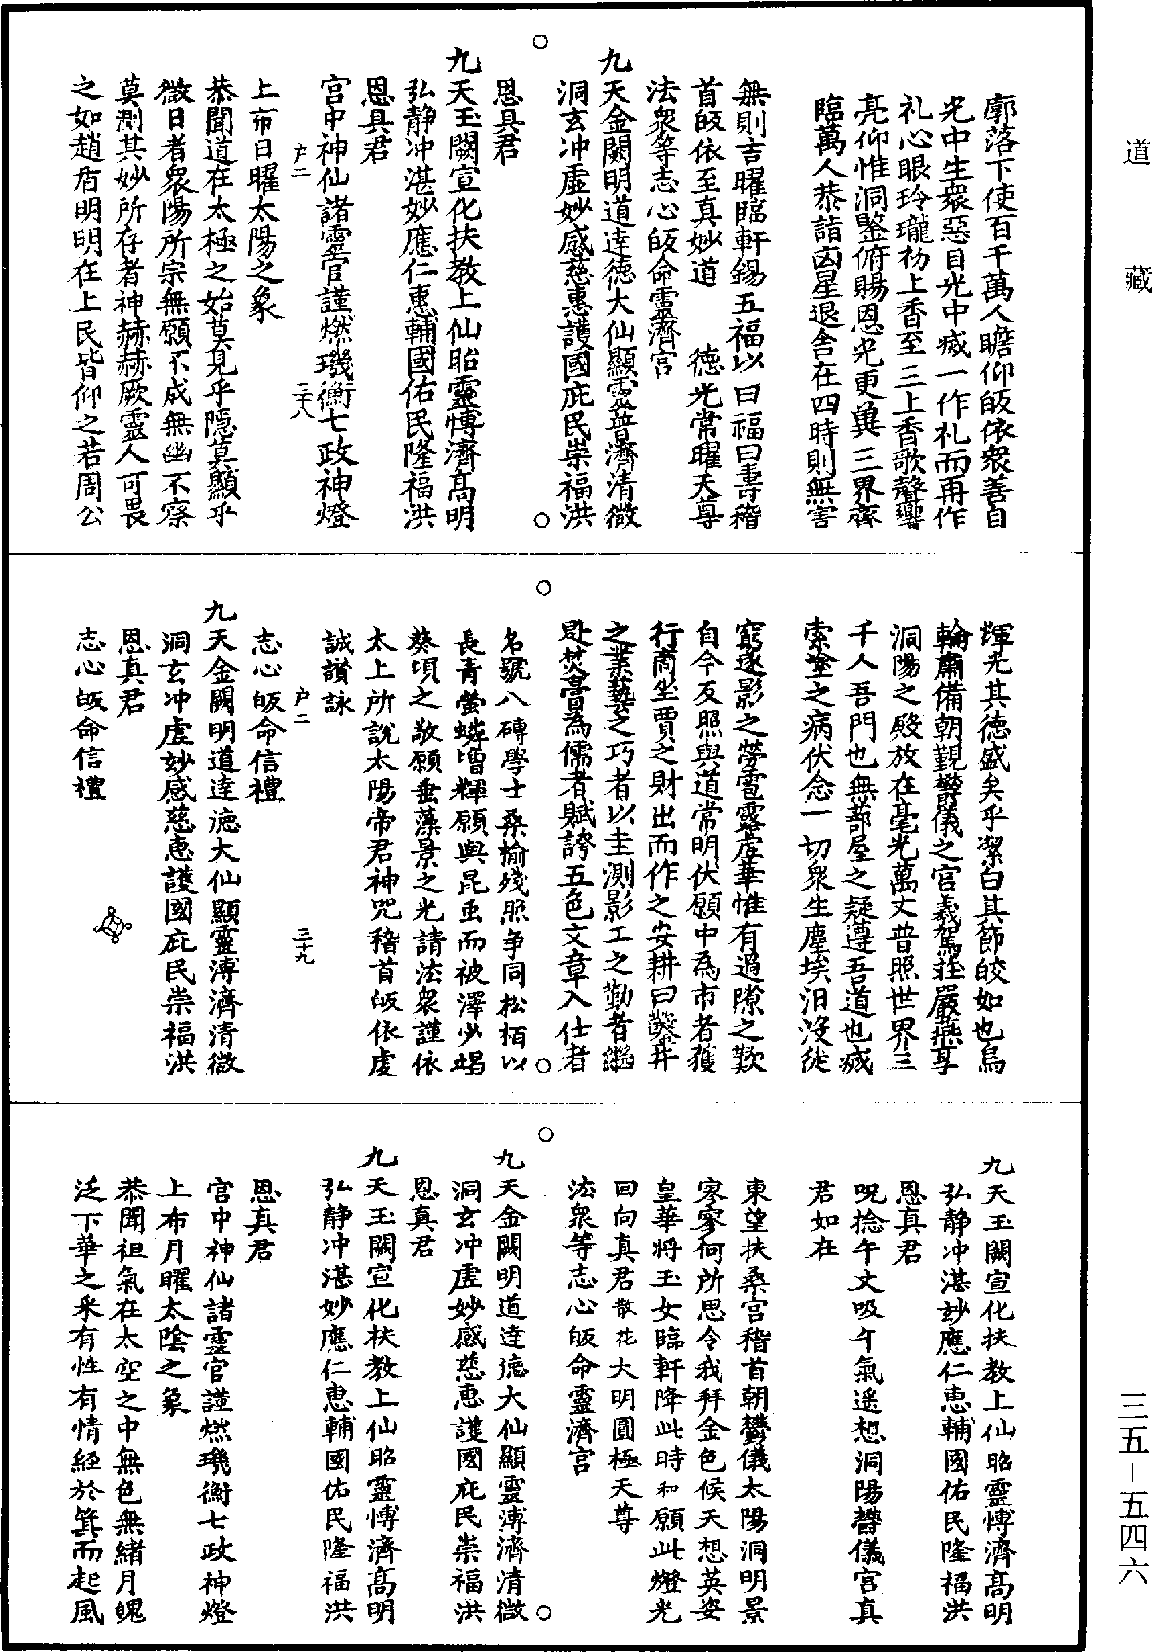 道藏
廓落下使百千萬人瞻仰皈依衆善自
光中生衆惡目光中烕一作礼而再作
礼心眼玲瓏初上香至三上香歌聲響
亮仰惟洞鑒俯賜恩光更冀三界齊
臨萬人恭詣凶星退舍在四時則無害
無則吉曜臨軒錫五福以曰福曰壽稽
首皈依至真妙道　德光常曜天尊
法衆等志心皈命靈濟宮
九天金闕明道達德大仙顯靈普濟清微
洞玄冲虛妙感慈惠護國庇民崇福洪
恩真君
九天玉闕宣化扶教上仙昭靈博濟高明
弘靜冲湛妙應仁惠輔國佑民隆福洪
恩真君
宮中神仙諸靈官謹燃璣衡七政神燈
户二　三十八
上布日曜太陽之象
恭聞道在太極之始莫見乎隱莫顯乎
微日者衆陽所宗無願不成無幽不察
莫測其妙所存者神赫赫厥靈人可畏
之如趙盾明明在上民皆仰之若周公
輝光其德盛矣乎潔白其節皎如也烏
輪肅備朝覲鬱儀之宮羲駕莊嚴燕享
洞陽之殿放在毫光萬丈普照世界三
千人吾門也無蔀屋之疑遵吾道也烕
索塗之病伏念一切衆生塵埃汨没徙
窮逐影之勞雹露虛華惟有過隙之歎
自今友照與道常明伏願中為市者獲
行商坐賈之財出而作之安耕田鑿井
之業藝之巧者以圭測影工之勤者繼
晷焚膏為儒者賦誇五色文章入仕者
名號八磚學士桑榆殘照争同松栢以
長青螢燐增輝願與昆虫而被澤少竭
葵頃之敬願垂藻景之光請法衆謹依
太上所説太陽帝君神咒稽首皈依虔
誠讃詠
户二　三十九
志心皈命信禮
九天金闕明道達德大仙顯靈溥濟清微
洞玄冲虛妙感慈惠護國庇民崇福洪
恩真君
志心皈命信禮
九天玉闕宣化扶教上仙昭靈博濟高明
弘靜冲湛妙應仁惠輔國佑民隆福洪
恩真君
呪捻午文吸午氣遥想洞陽鬱儀宮真
君如在
東望扶桑宮稽首朝鬱儀太陽洞明景
寥寥何所思令我拜金色候天想英姿
皇華將玉女臨軒降此時和願此燈光
回向真君散花大明圓極天尊
法衆等志心皈命靈濟宮
九天金闕明道達德大仙顯靈溥濟清微
洞玄冲虛妙感慈惠護國庇民崇福洪
恩真君
九天玉闕宣化扶教上仙昭靈博濟高明
弘靜冲湛妙應仁惠輔國佑民隆福洪
恩真君
宮中神仙諸靈官謹燃璣衡七政神燈
上布月曜太陰之象
恭聞祖氣在太空之中無色無緒月魄
泛下華之釆有性有情經於箕而起風
三五－五四六